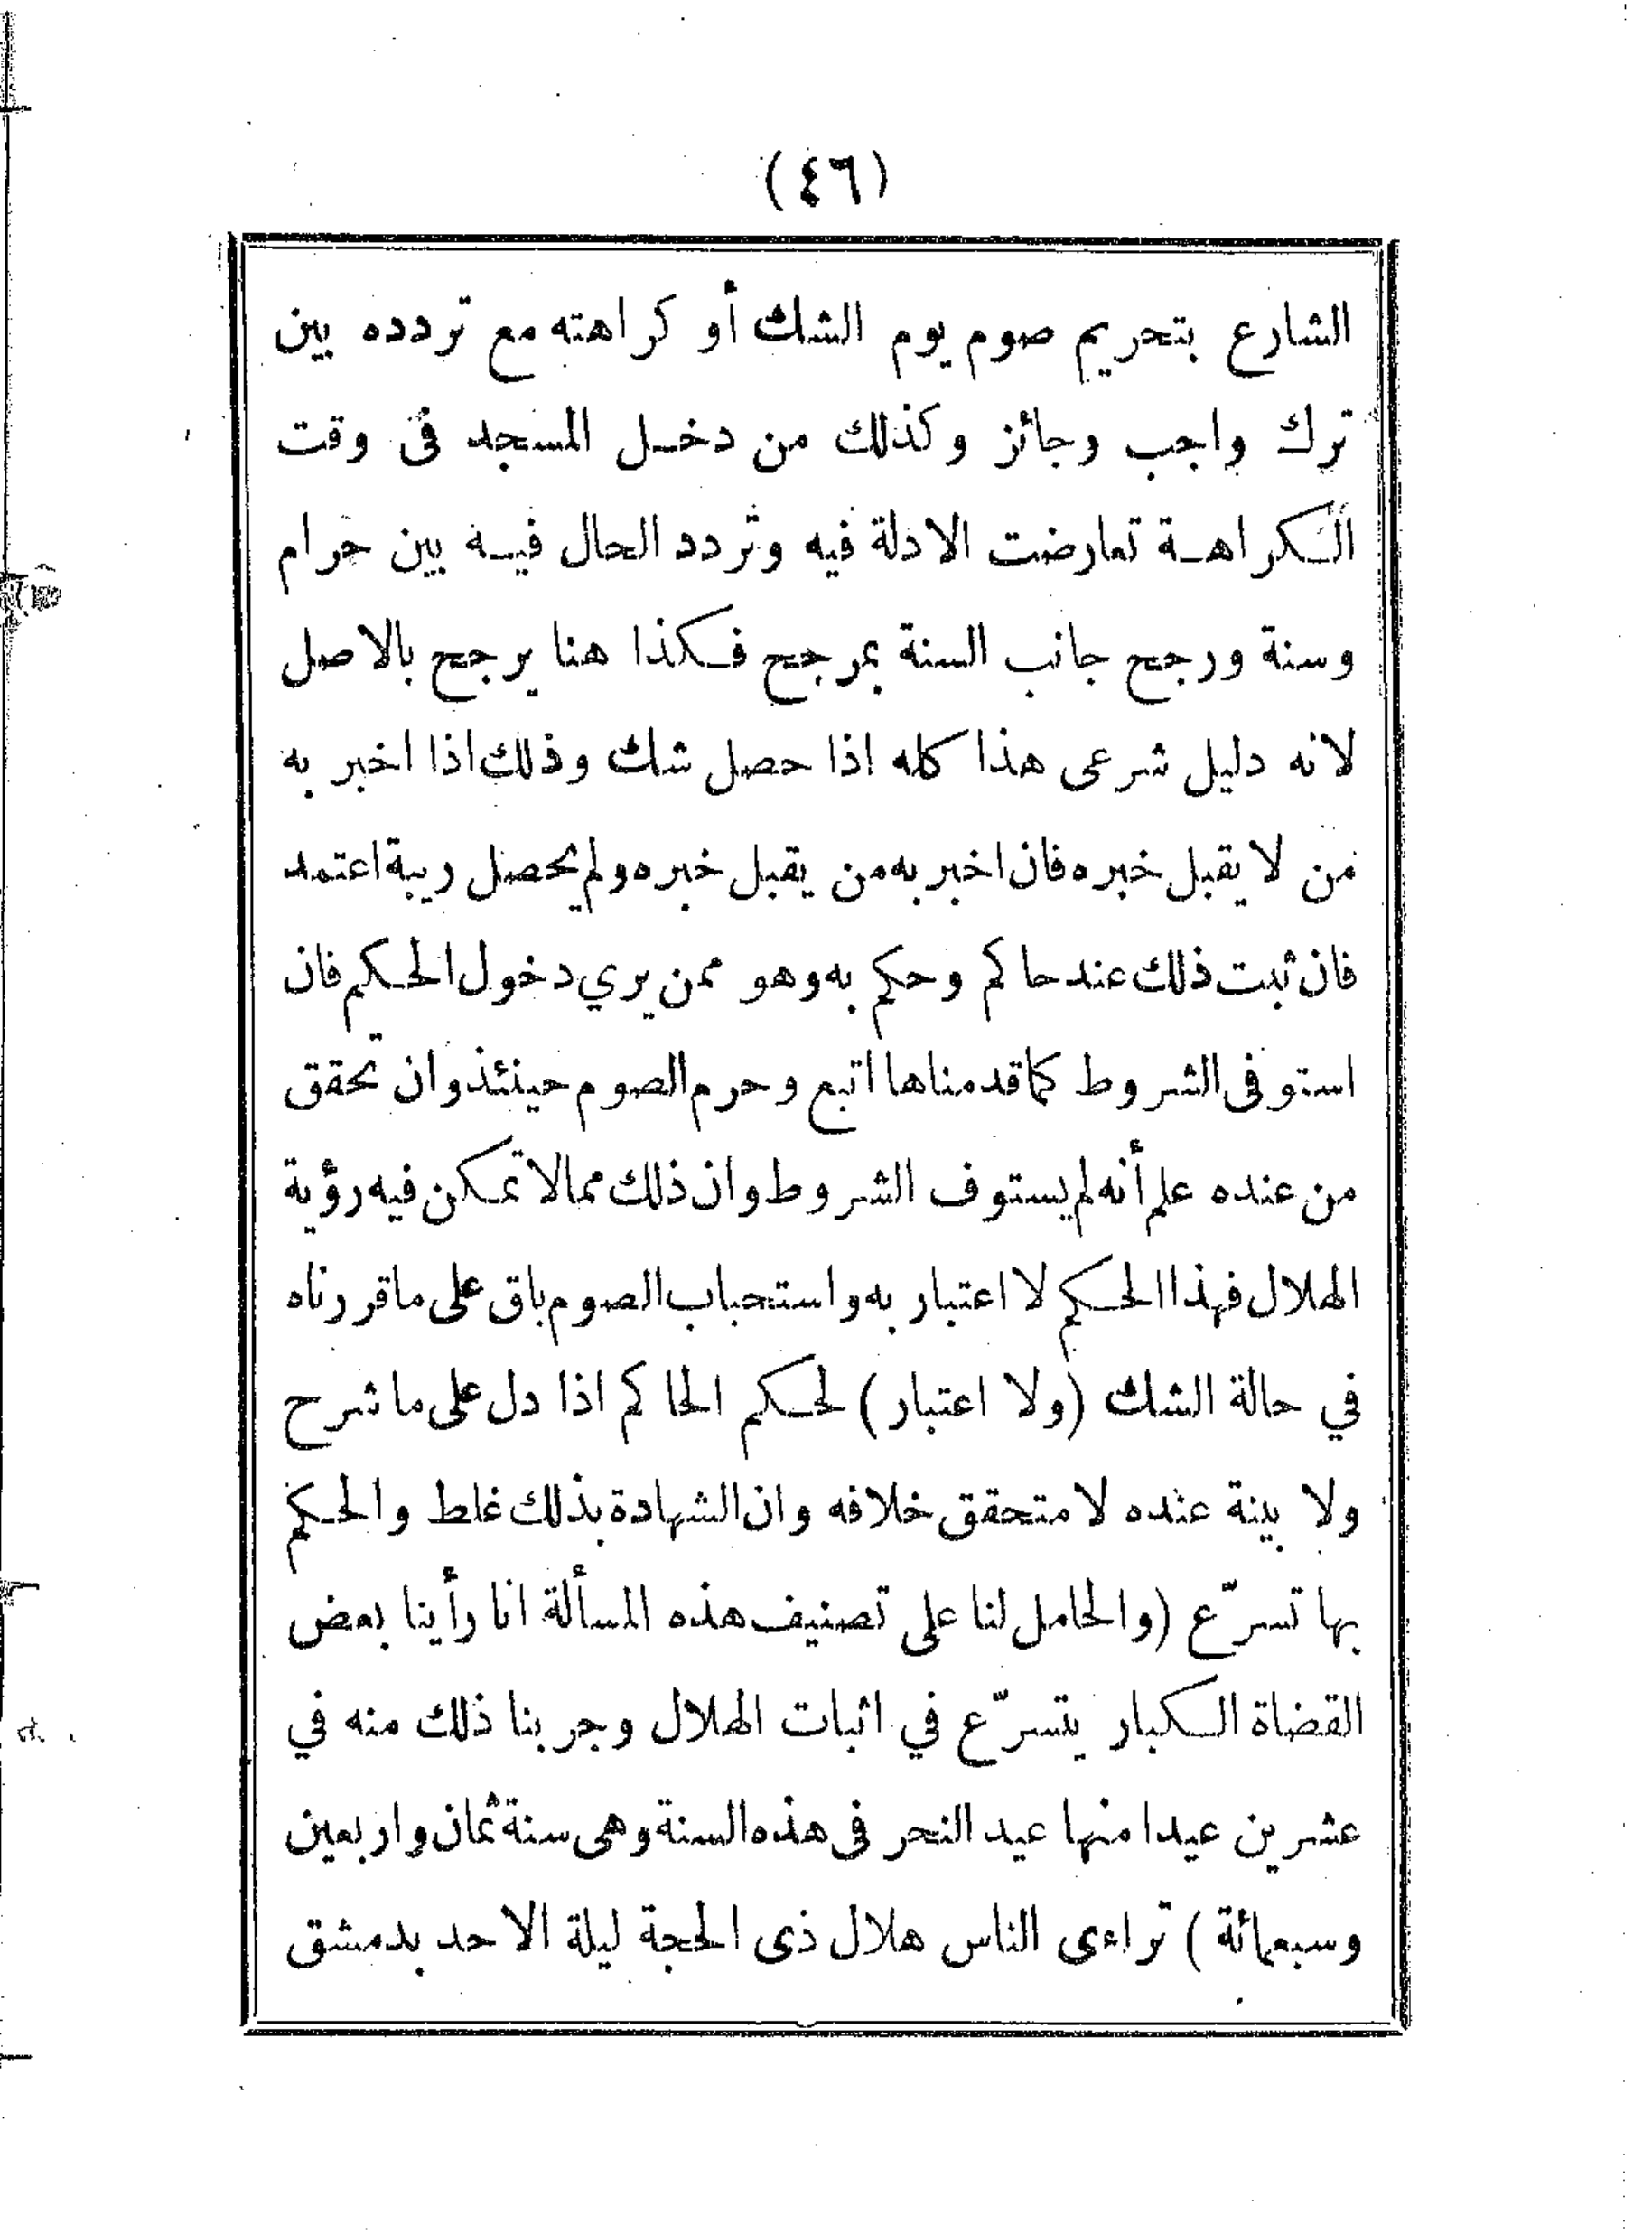 (٤٦)
الشارع بتحريم صوم يوم الشك أو كراهته مع تردده بين
ترك واجب وجائز وكذلك من دخل المسجد فى وقت
الكراهة تعارضت الادلة فيه وتردد الحال فيه بين حرام
وسنة ورجح جانب السنة بمرجح فكذا هنا يرجح بالاصل
لانه دليل شرعى هذا كله اذا حصل شك وذلك اذا اخبر به
من لا يقبل خبره فان اخبر به من يقبل خبره ولم يحصل ريبة اعتمد
فان ثبت ذلك عند حاكم وحكم به وهو ممن يري دخول الحكم فان
استوفى الشروط كما قدمناها اتبع وحرم الصوم حينئذ وان تحقق
من عنده علم أنه لم يستوف الشروط وان ذلك مما لا تمكن فيه رؤية
الهلال فهذا الحكم لا اعتبار به واستحباب الصوم باق على ما قررناه
في حالة الشك (ولا اعتبار) لحكم الحاكم اذا دل على ما شرح
ولا بينة عنده لا متحقق خلافه وان الشهادة بذلك غلط والحكم
بها تسرّع (والحامل لنا على تصنيف هذه المسألة انا رأينا بعض
القضاة الكبار يتسرّع في اثبات الهلال وجربنا ذلك منه في
عشرين عيدا منها عيد النحر فى هذه السنة وهى سنة ثمان واربعين
وسبعمائة) تراءى الناس هلال ذى الحجة ليلة الاحد بدمشق